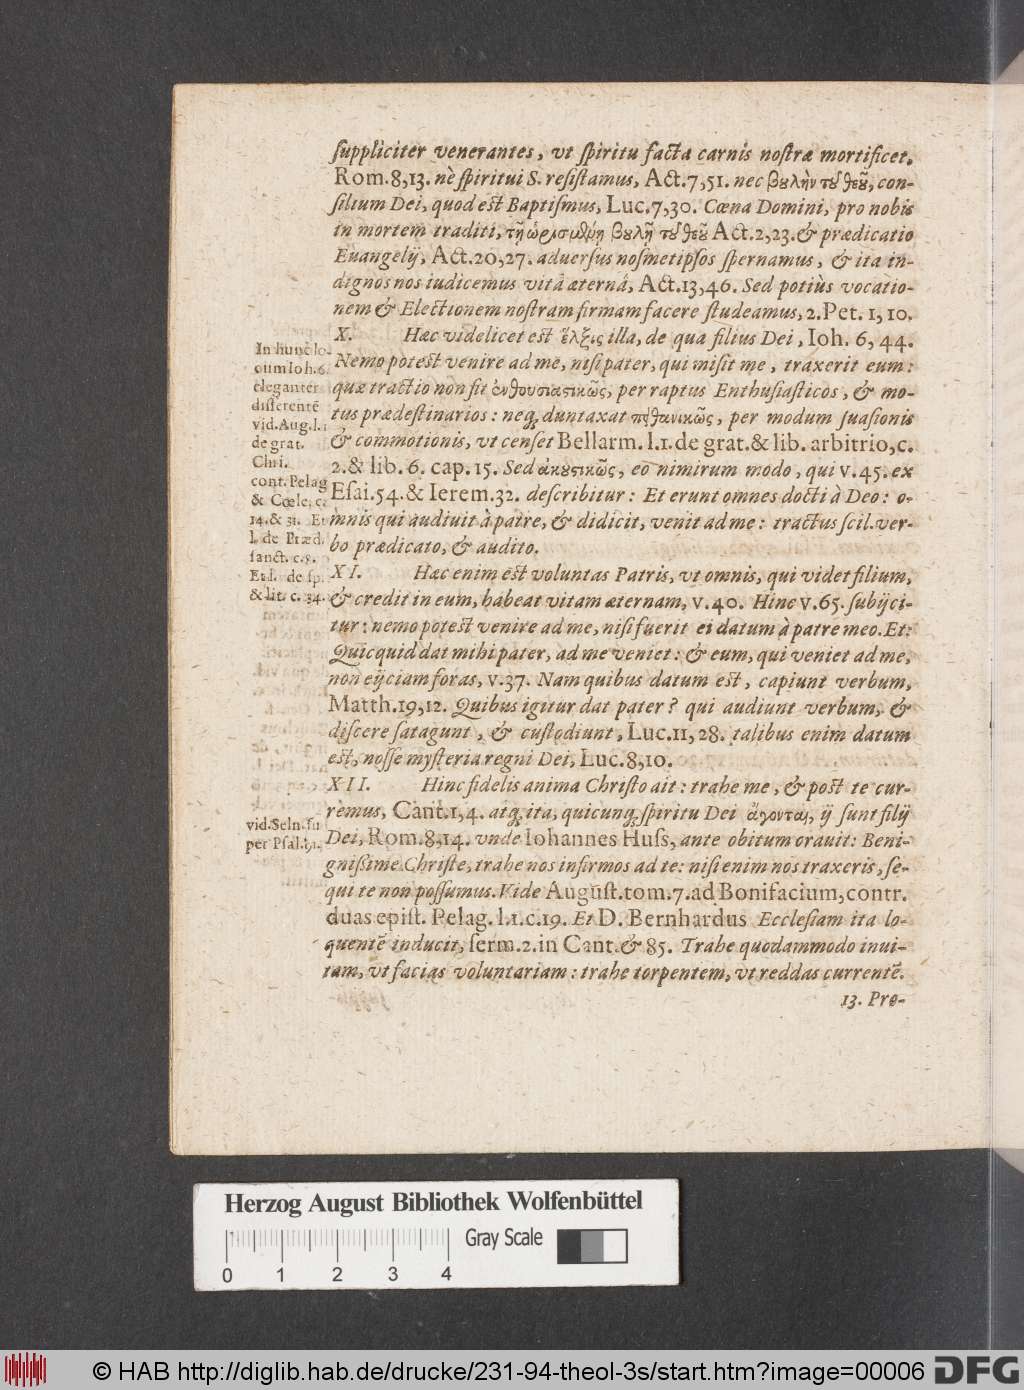 ſuppliciter venerantes, vt ſpiritu facta carnis noſtræ mortificet,
Rom.8,13. nè ſpiritui S. reſiſtamus, Act.7,51. nec βουλὴν τοῦ θεοῦ, con-
ſilium Dei, quod eſt Baptiſmus, Luc.7,30. Cœna Domini, pro nobis
in mortem traditi, τῇ ὡρισμένῃ βουλῇ τοῦ θεοῦ Act.2,23. & prædicatio
Euangelij, Act.20,27. aduerſus noſmetipſos ſpernamus, & ita in-
dignos nos iudicemus vitâ æternâ, Act.13,46. Sed potiùs vocatio-
nem & Electionem noſtram firmam facere ſtudeamus, 2.Pet. 1, 10.
X. Hæc videlicet eſt ἕλξις illa, de qua filius Dei, Ioh. 6, 44.
Nemo poteſt venire ad me, niſi pater, qui miſit me, traxerit eum:
quæ tractio non fit ἐνθουσιαστικῶς, per raptus Enthuſiaſticos, & mo-
tus prædeſtinarios: neq; duntaxat πιθανικῶς, per modum ſuaſionis
& commotionis, vt cenſet Bellarm. l.1. de grat. & lib. arbitrio, c.
2. & lib. 6. cap. 15. Sed ἀκουστικῶς, eo nimirum modo, qui v.45. ex
Eſai.54. & Ierem.32. deſcribitur: Et erunt omnes docti à Deo: o-
mnis qui audiuit à patre, & didicit, venit ad me: tractus ſcil. ver-
bo prædicato, & audito.
XI. Hæc enim eſt voluntas Patris, vt omnis, qui videt filium,
& credit in eum, habeat vitam æternam, v.40. Hinc v.65. ſubijci-
tur: nemo poteſt venire ad me, niſi fuerit ei datum à patre meo. Et:
Quicquid dat mihi pater, ad me veniet: & eum, qui veniet ad me,
non eijciam foras, v.37. Nam quibus datum eſt, capiunt verbum,
Matth.19,12. Quibus igitur dat pater? qui audiunt verbum, &
diſcere ſatagunt, & cuſtodiunt, Luc.11, 28. talibus enim datum
eſt, noſſe myſteria regni Dei, Luc.8,10.
XII. Hinc fidelis anima Chriſto ait: trahe me, & poſt te cur-
remus, Cant.1,4. atq; ita, quicunq; ſpiritu Dei ἄγονται, ij ſunt filij
Dei, Rom.8,14. vnde Iohannes Huſs, ante obitum orauit: Beni-
gnißime Chriſte, trahe nos infirmos ad te: niſi enim nos traxeris, ſe-
qui te non poſſumus. Vide Auguſt. tom. 7. ad Bonifacium, contr.
duas epiſt. Pelag. l.1. c.19. Et D. Bernhardus Eccleſiam ita lo-
quentẽ inducit, ſerm.2. in Cant. & 85. Trahe quodammodo inui-
tam, vt facias voluntariam: trahe torpentem, vt reddas currentẽ.
13. Pro-
In hunc lo-
cum Ioh. 6.
eleganter
diſſerentẽ
vid. Aug. l.1
de grat.
Chri.
cont. Pelag
& Cœle. c.
14. & 31. Et
l. de Præd.
ſanct. c.8.
Et l. de ſp.
& lit. c. 34.
vid. Seln. ſu
per Pſal. 51.
Herzog August Bibliothek Wolfenbüttel
Gray Scale
0 1 2 3 4
© HAB http://diglib.hab.de/drucke/231-94-theol-3s/start.htm?image=00006
DFG